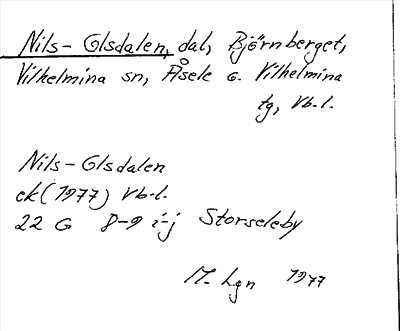 Nils-Olsdalen, dal, Björnberget,
Vilhelmina sn, Åsele o. Vilhelmina
tg, Vb.l.
Nils-Olsdalen
ek (1977) Vb.l.
22 G 8-9 i-j Storseleby
M. Lgn 1977